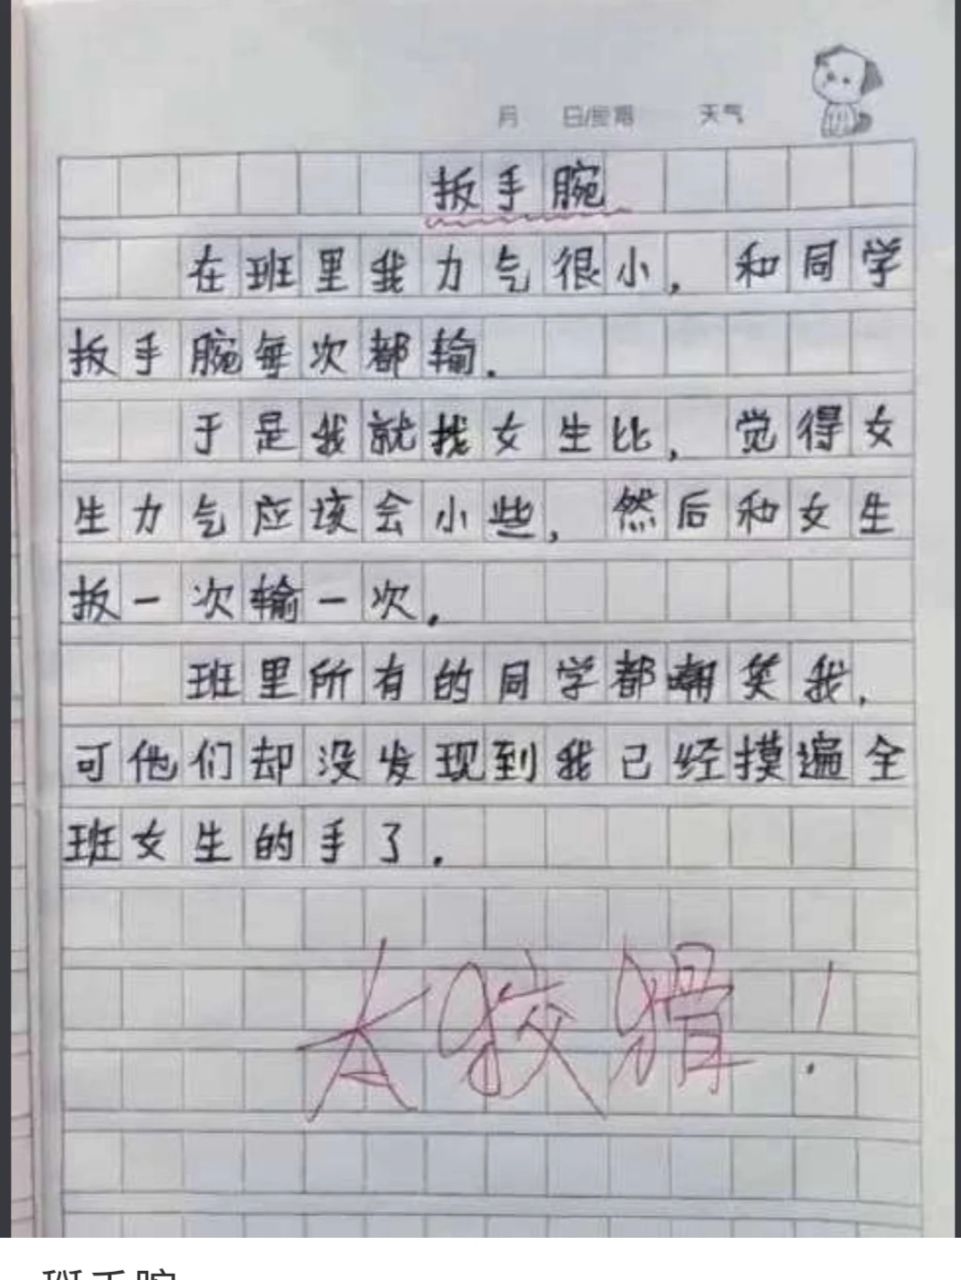 月 日/星期 天气
扳手腕
在班里我力气很小，和同学
扳手腕每次都输.
于是我就找女生比，觉得女
生力气应该会小些，然后和女生
扳一次输一次.
班里所有的同学都嘲笑我，
可他们却没发现到我已经摸遍全
班女生的手了.
太狡猾！
掰手腕